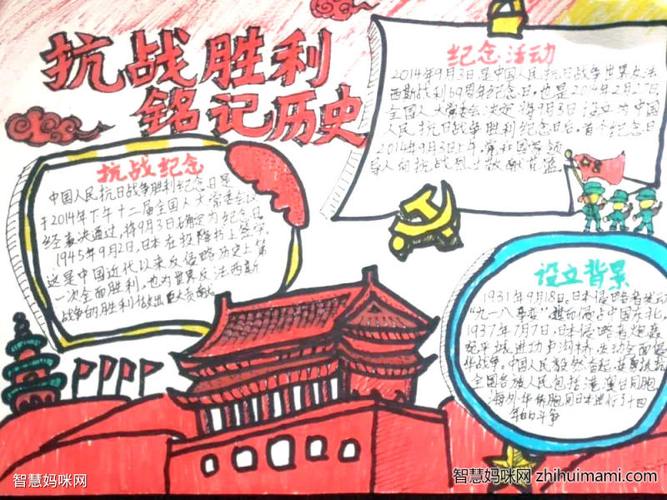 抗战胜利
铭记历史
纪念活动
2014年9月3日是中国人民抗日战争世界反法
西斯战利69周年纪念日。也是2014年2月27日
全国人大常委会决定 将9月3日 设立为 中国
人民抗日战争胜利纪念日后，首个纪念日
2014年9月3日上午，
抗战纪念
中国人民抗日战争胜利纪念日是
于2014年下午十二届全国人大常委会以
经表决通过，将9月3日确定为纪念日
1945年9月2日，日本在投降书上签字
这是中国近代以来反侵略历史上第
一次全面胜利，也为世界反法西斯
战争的胜利做出巨大贡献
设立背景
1931年9月18日，日本侵略者发动
"九一八事变"，中国东北。
1937年7月7日，日本侵略者炮轰
宛平城进攻卢沟桥，发动全面侵
华战争。中国人民毅然奋起，
全国各族人民包括港澳台同胞
海外华侨同胞同日本进行了十四
年的斗争
智慧妈咪网
智慧妈咪网 zhihuimami.com